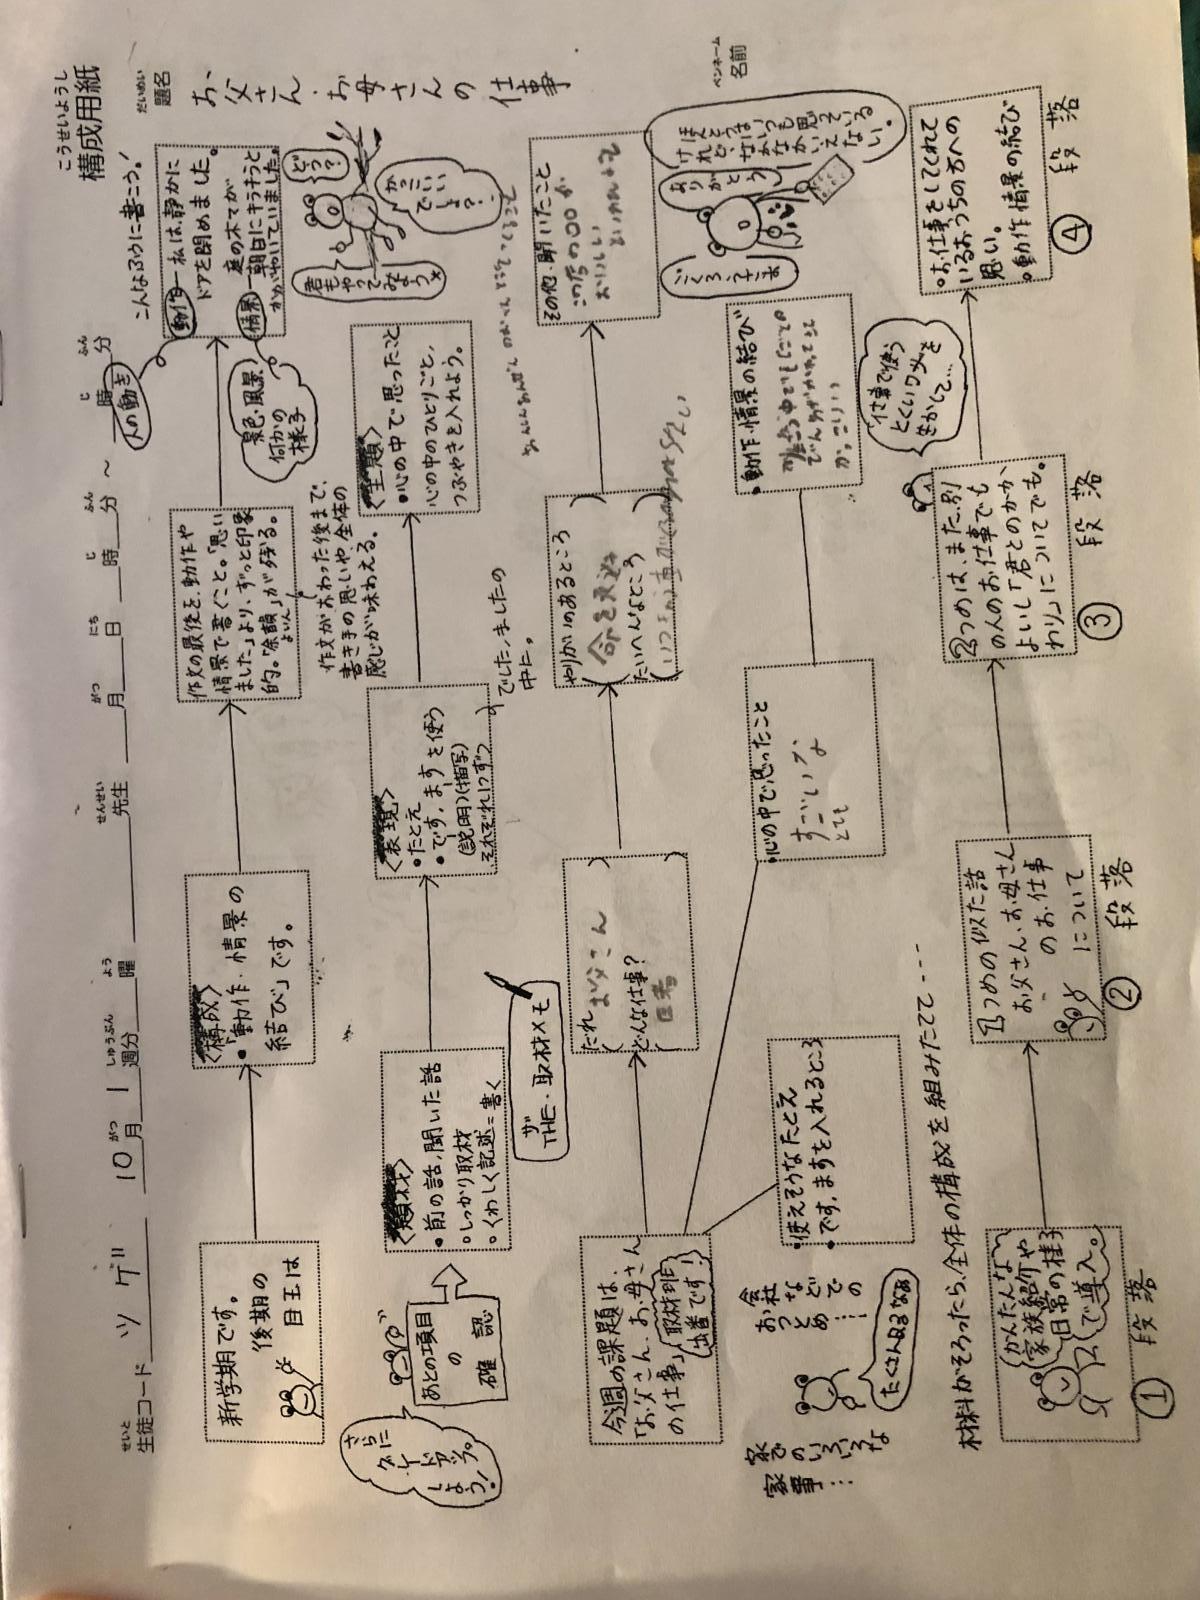 こうせいようし
構成用紙
せいと
生徒コード ツゲ 10月1週分 曜 先生 月 日 時 分 ～ 時 分
がつ しゅうぶん よう せんせい がつ にち じ ふん じ ふん
だいめい
題名
お父さん・お母さんの仕事
ペンネーム
名前
新学期です。
後期の
目玉は
<構成>
・「動作・情景の
結び」です。
作文の最後を、動作や
情景で書くこと。「思い
ました」より、ずっと印象
的。「余韻」が残る。
よいん
作文がおわった後まで、
書き手の思いや、全体の
感じが味わえる。
人の動き
景色・風景
何かの
様子
こんなふうに書こう!
動作―私は、静かに
ドアを閉めました。
情景―庭の木てが
朝日にキラキラと
かがやいていました。
どう?
かっこいい
でしょ?
君もやって
みよう
さらに
グレード
アップ
しよう!
あとの項目
の
確認
<題材>
・前の話、聞いた話
・しっかり取材
・くわしく記述=書く
<表現>
・たとえ
・です、ますを使う
(説明)(描写)
それぞれ1つずつ
でした、ましたの
中に。
<主題>
・心の中で思ったこと
心の中のひとりごと、
つぶやきを入れよう。
ザ
THE・取材メモ
今週の課題は、
「お父さん、お母さん
の仕事」取材班
出番です!
だれ
(お父さん)
どんな仕事?
(医者)
やりがいのあるところ
(命を
たいへんなところ
(いつ
その他・聞いたこと
この店の〇〇が
おいしい
ほんとうは、いつも思っている
けれど、なかなかいえない。
ありがとう
ごくろうさま
家でのいろいろな
家事…
お会社
などでの
おつとめ…
たくさんあるなぁ
・使えそうなたとえ
・です、ますを入れるところ
・心の中で思ったこと
すごいな
とても
・動作・情景の結び
材料がそろったら、全体の構成を組みたてて----
かんたんな
家族紹介や
日常の様子
で導入。
①段落
1つめの似た話
お父さん、お母さん
のお仕事
について
②段落
2つめは、また、別
の人のお仕事でも
よいし「君とのかか
わり」についてでも。
③段落
仕事で使う
とくいワザを
生かして…
・お仕事をしてくれて
いるおうちの方への
思い。
・動作・情景の結び
④段落